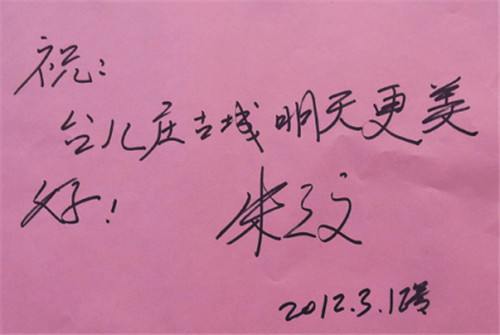 祝：
台儿庄古城明天更美
好！ 朱之文
2012.3.12号